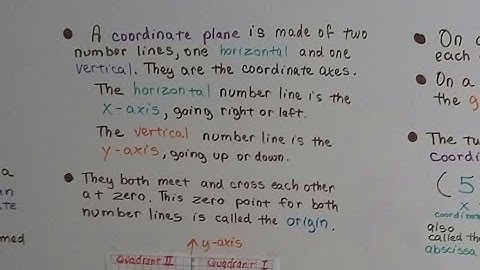 A coordinate plane is made of two
number lines, one horizontal and one
vertical. They are the coordinate axes.
The horizontal number line is the
x-axis, going right or left.
The vertical number line is the
y-axis, going up or down.
They both meet and cross each other
at zero. This zero point for both
number lines is called the origin.
y-axis
Quadrant II Quadrant I
a
med
On
each
On a
the
The tw
coordi
(5
x
coordinate
also
called the
abscissa